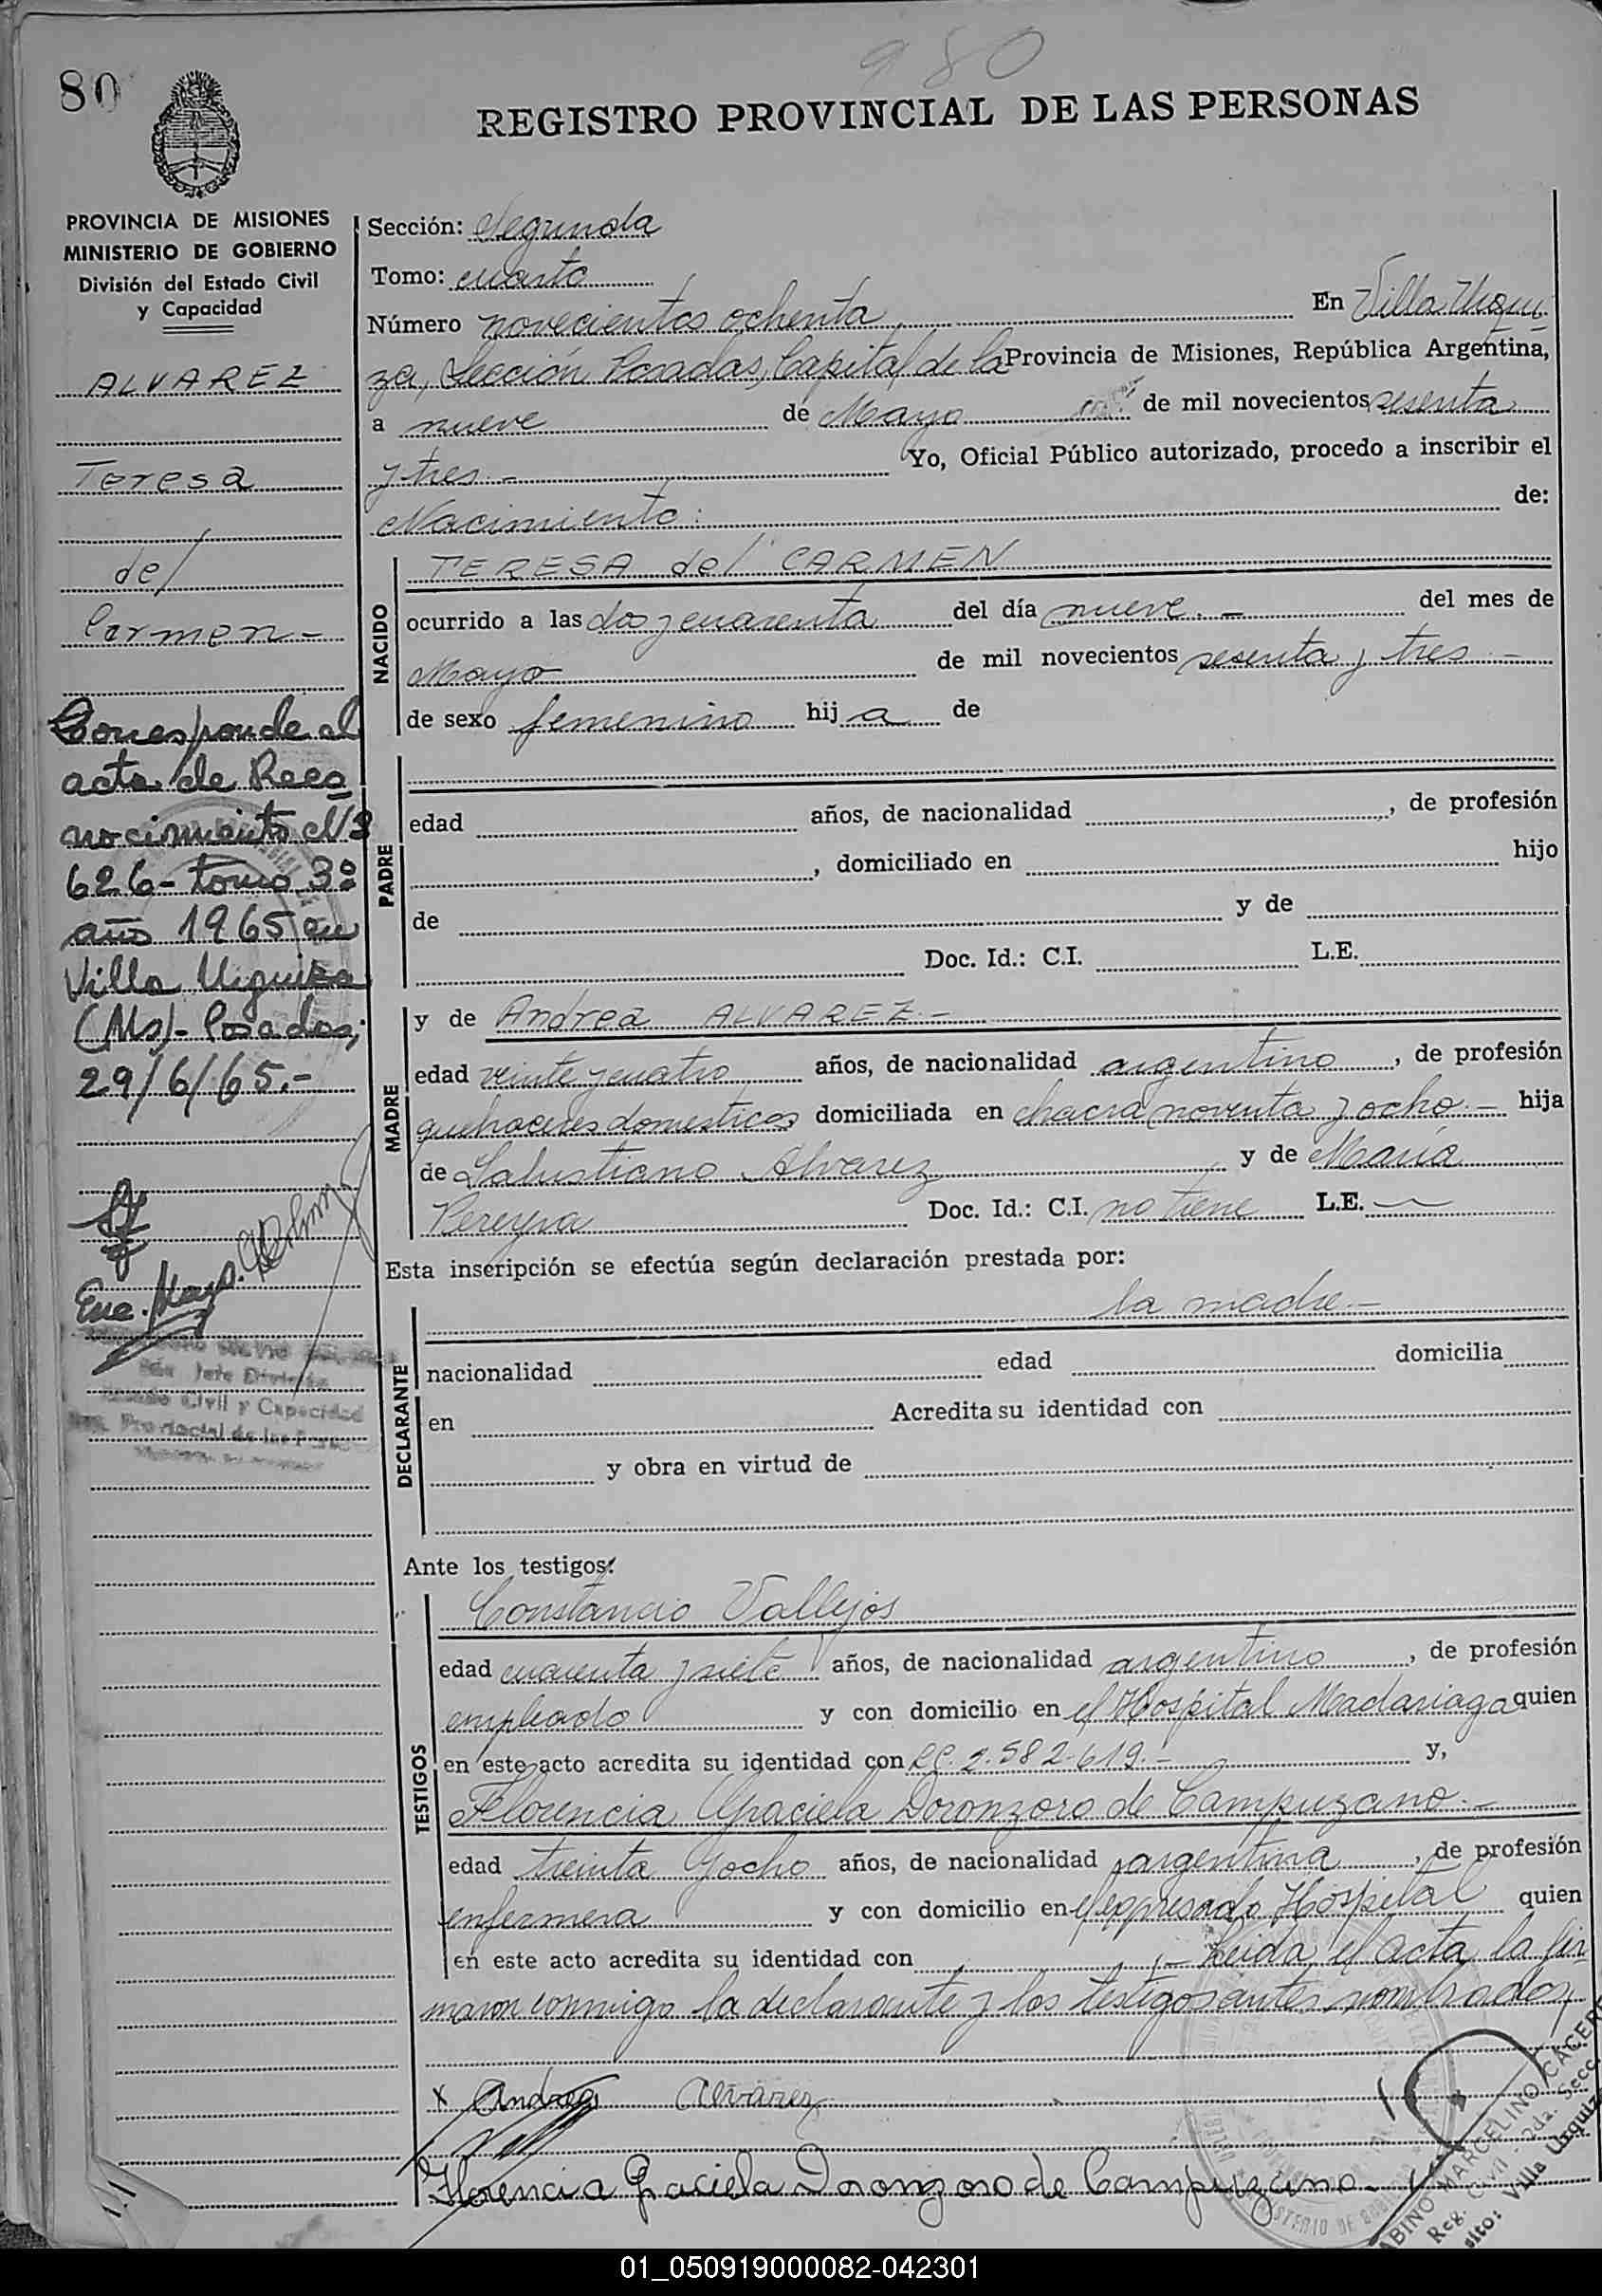 980
80
REGISTRO PROVINCIAL DE LAS PERSONAS
PROVINCIA DE MISIONES
MINISTERIO DE GOBIERNO
División del Estado Civil
y Capacidad
ALVAREZ
Teresa
del
Carmen-
Corresponde al
acta de Reco
nocimiento Nº
626- tomo 3º
año 1965 en
Villa Urquiza
(Ms)- Posadas,
29/6/65.-
Jefe División
Estado Civil y Capacidad
Reg. Provincial de las Pers
Sección: Segunda
Tomo: cuarto
Número novecientos ochenta En Villa Urqui
za, Sección Posadas, Capital de la Provincia de Misiones, República Argentina,
a nueve de Mayo de mil novecientos sesenta
y tres.- Yo, Oficial Público autorizado, procedo a inscribir el
Nacimiento: de:
NACIDO
TERESA del CARMEN
ocurrido a las dos y cuarenta del día nueve.- del mes de
Mayo de mil novecientos sesenta y tres.-
de sexo femenino hija de
PADRE
edad años, de nacionalidad , de profesión
, domiciliado en hijo
de y de
Doc. Id.: C.I. L.E.
MADRE
y de Andrea ALVAREZ.-
edad veinte y cuatro años, de nacionalidad argentino, de profesión
quehaceres domesticos domiciliada en chacra noventa y ocho.- hija
de Salustiano Alvarez y de María
Pereyra Doc. Id.: C.I. no tiene L.E. —
Esta inscripción se efectúa según declaración prestada por:
la madre.-
DECLARANTE
nacionalidad edad domicilia
en Acredita su identidad con
y obra en virtud de
Ante los testigos:
TESTIGOS
Constancio Vallejos
edad cuarenta y siete años, de nacionalidad argentino, de profesión
empleado y con domicilio en el Hospital Madariaga quien
en este acto acredita su identidad con 2.582-619.- y,
Florencia Graciela Doronzoro de Campuzano.-
edad treinta y ocho años, de nacionalidad argentina, de profesión
enfermera y con domicilio en el expresado Hospital quien
en este acto acredita su identidad con .- Leida el acta la fir
maron conmigo la declarante y los testigos antes nombrados
x Andrea Alvarez
Florencia Graciela Doronzoro de Campuzano.
MARCELINO CACERE
Reg. Civil - 2da. Secc.
Villa Urquiz
01_050919000082-042301